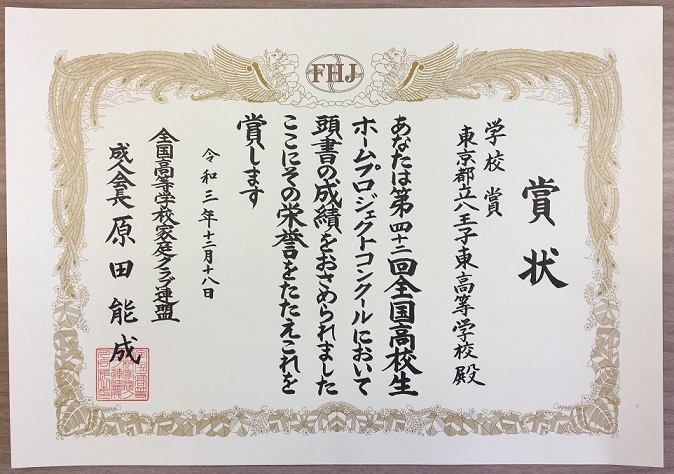 FHJ
賞状
学校賞
東京都立八王子東高等学校殿
あなたは第四十二回全国高校生
ホームプロジェクトコンクールにおいて
頭書の成績をおさめられました
ここにその栄誉をたたえこれを
賞します
令和三年十二月十八日
全国高等学校家庭クラブ連盟
成人会長 原田能成